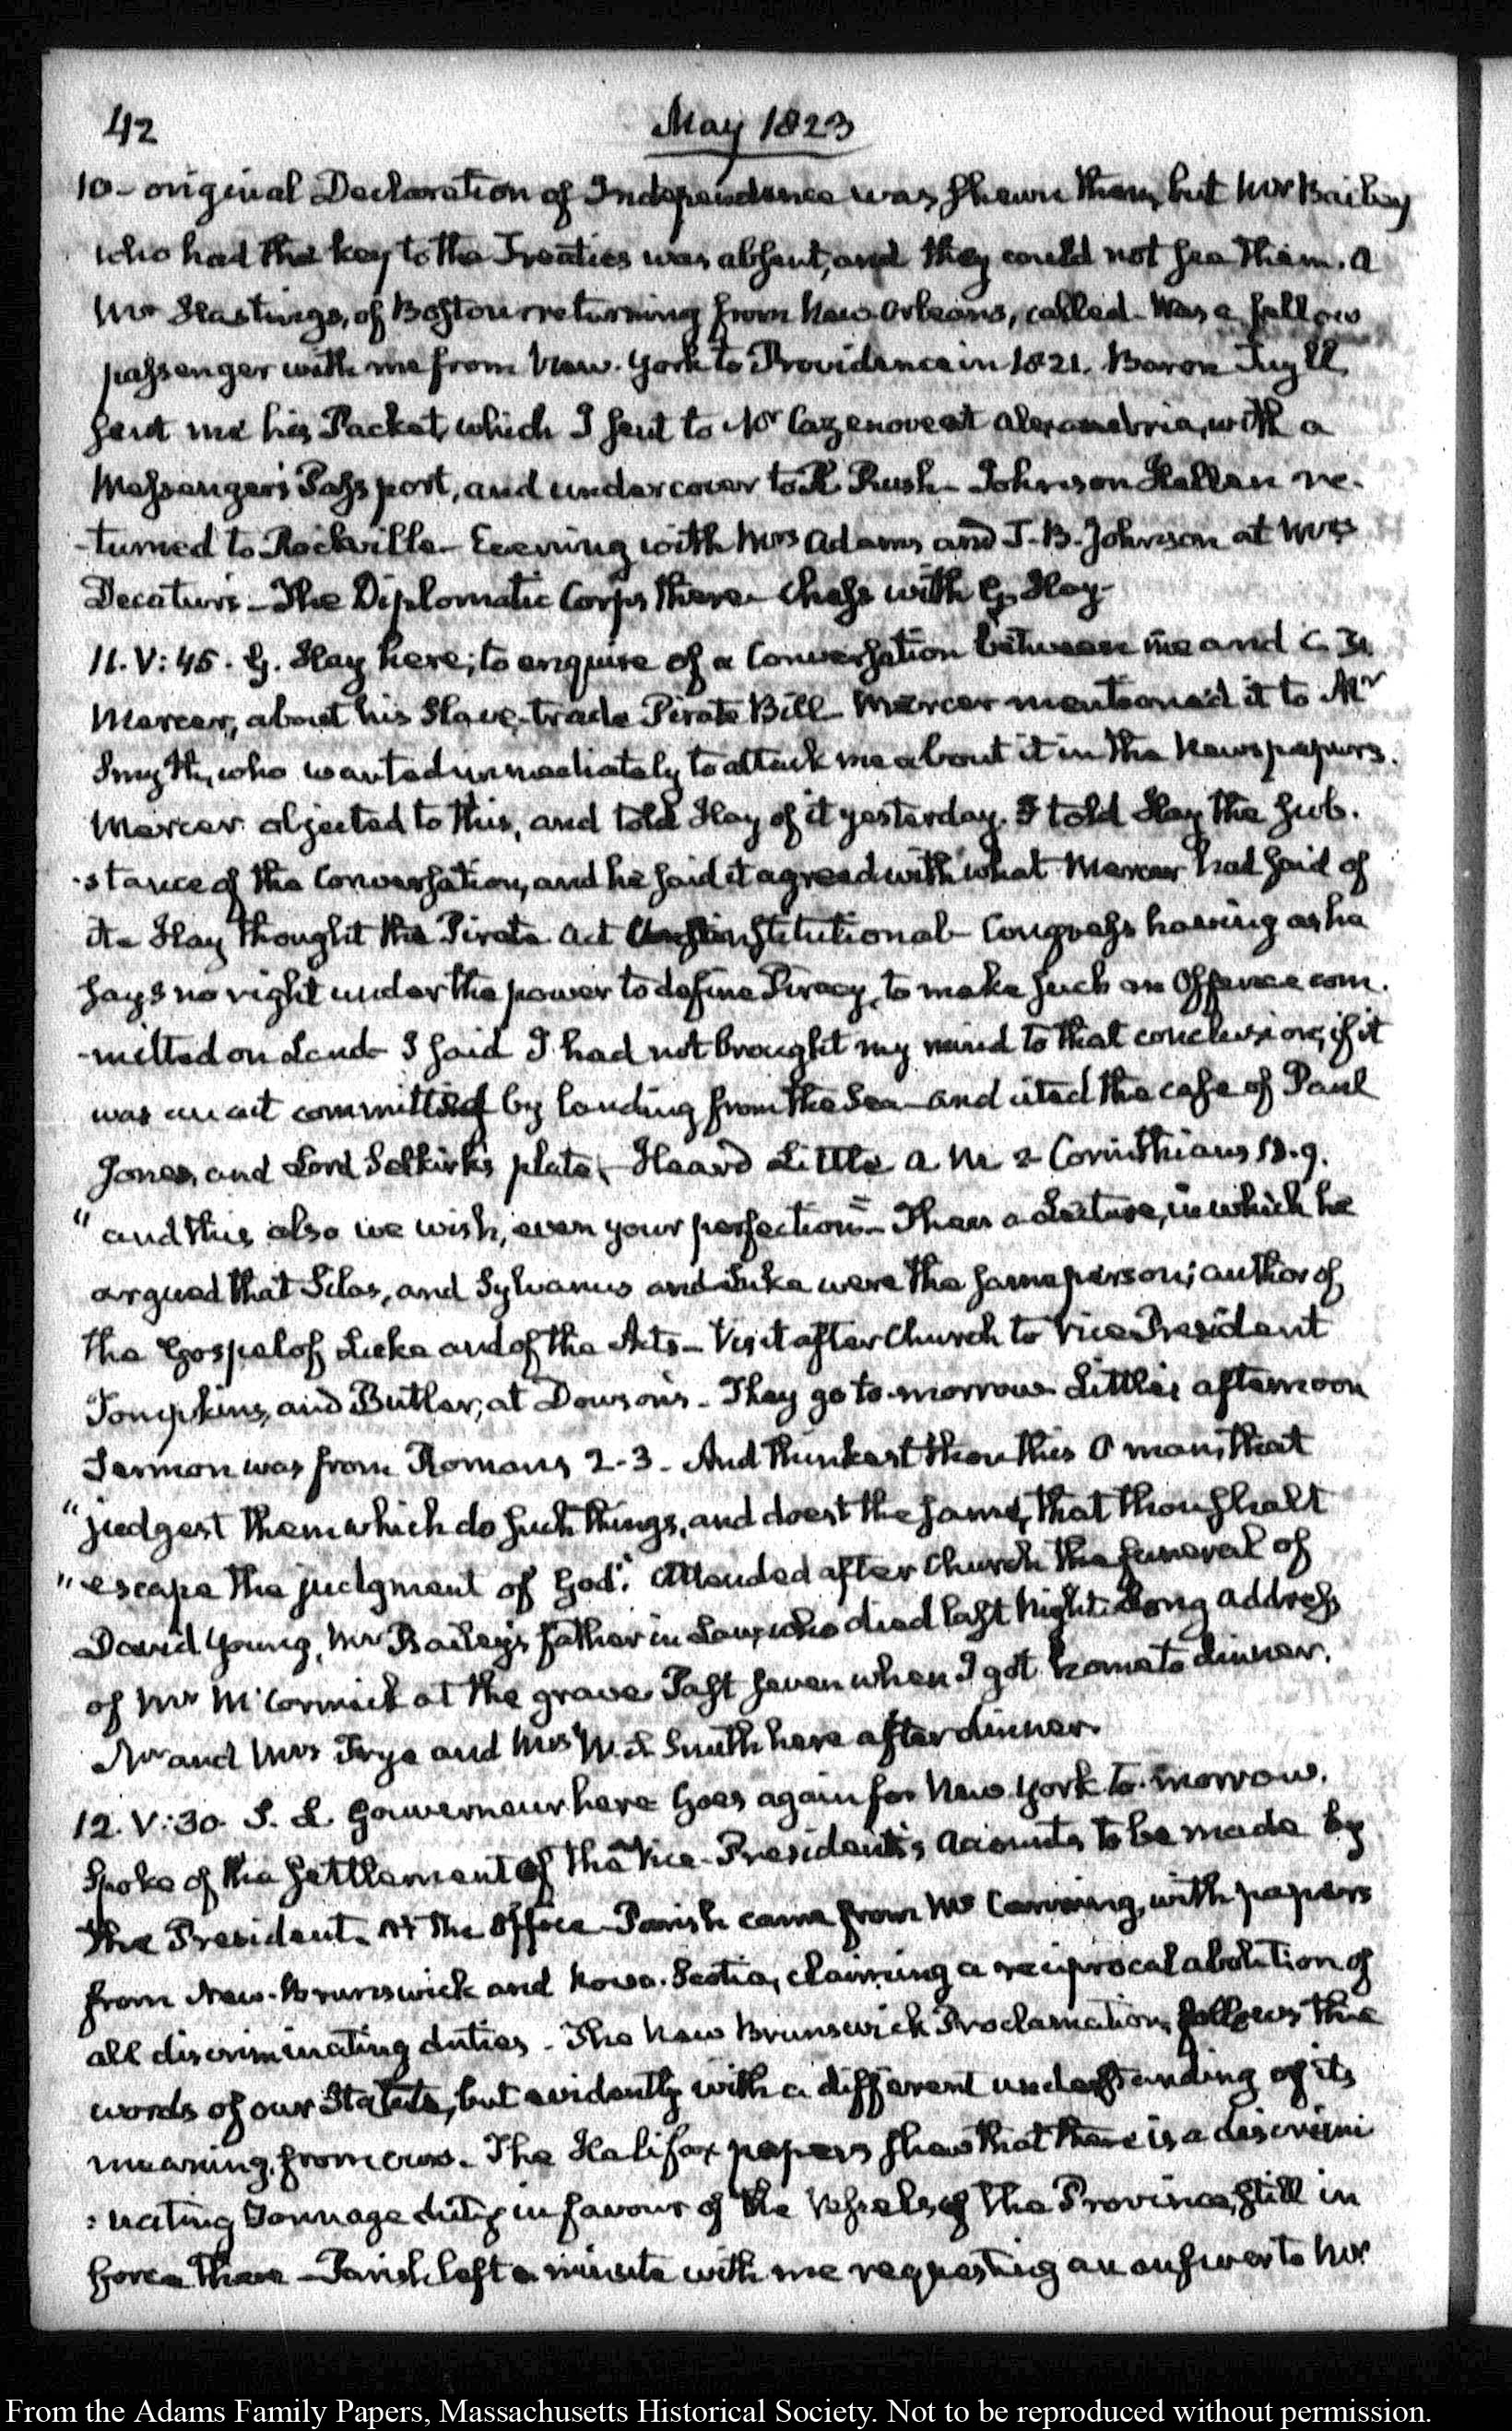 42
May 1823
10 - original Declaration of Independence was shewn them, but Mr Bailey
who had the key to the Treaties was absent, and they could not see them. A
Mr Hastings, of Boston returning from New-Orleans, called. Was a fellow
passenger with me from New-York to Providence in 1821. Baron Tuyll,
sent me his Packet, which I sent to Mr Cazenove at Alexandria, with a
Messenger's Passport, and under cover to R. Rush - Johnson Hellen re-
-turned to Rockville - Evening with Mrs Adams and T. B. Johnson at Mrs
Decatur's - The Diplomatic Corps there - Chess with G. Hay -
11. V: 45. G. Hay here; to enquire of a Conversation between me and C. F.
Mercer, about his Slave-trade Pirate Bill - Mercer mentioned it to Mr
Smyth, who wanted immediately to attack me about it in the Newspapers.
Mercer objected to this, and told Hay of it yesterday. I told Hay the sub-
-stance of the Conversation, and he said it agreed with what Mercer had said of
it - Hay thought the Pirate Act Unconstitutional - Congress having as he
says no right under the power to define Piracy, to make such an Offence com-
-mitted on Land - I said I had not brought my mind to that conclusion, if it
was an act committed by landing from the Sea - and cited the case of Paul
Jones, and Lord Selkirk's plate. - Heard Little A. M. 2 Corinthians 13. 9.
"and this also we wish, even your perfection" - Then a Lecture, in which he
argued that Silas, and Sylvanus and Luke were the same person; author of
the Gospel of Luke and of the Acts - Visit after Church to Vice President
Tompkins, and Butler, at Dowson's - They go to-morrow - Little's afternoon
Sermon was from Romans 2-3 - And thinkest thou this O man, that
"judgest them which do such things, and doest the same, that thou shalt
"escape the judgment of God". Attended after Church the funeral of
David Young, Mr Bailey's father in Law, who died last Night. Long address
of Mr McCormick at the grave. Past seven when I got home to dinner.
Mr and Mrs Frye and Mrs W. S. Smith here after dinner.
12. V: 30. S. L. Gouverneur here Goes again for New York to-morrow.
Spoke of the settlement of the Vice-President's Accounts to be made by
the President. At the Office - Parish came from Mr Canning, with papers
from New-Brunswick and Nova-Scotia, claiming a reciprocal abolition of
all discriminating duties - The New Brunswick Proclamation, follows the
words of our Statute, but evidently with a different understanding of its
meaning, from ours. - The Halifax papers shew that there is a discrimi
-nating Tonnage duty in favour of the Vessels of the Province, still in
force there - Parish left a minute with me requesting an answer to Mr
From the Adams Family Papers, Massachusetts Historical Society. Not to be reproduced without permission.